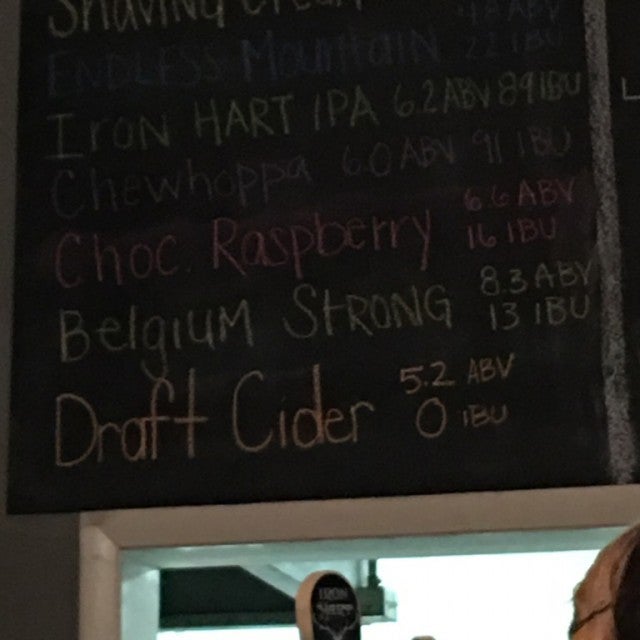 Shaving Cream 4.8 ABV
ENDLESS Mountain 22 IBU
Iron HART IPA 6.2 ABV 89 IBU
Chewhoppa 6.0 ABV 91 IBU
Choc. Raspberry 6.6 ABV
16 IBU
Belgium STRONG 8.3 ABV
13 IBU
Draft Cider 5.2 ABV
0 IBU
IRON
HART